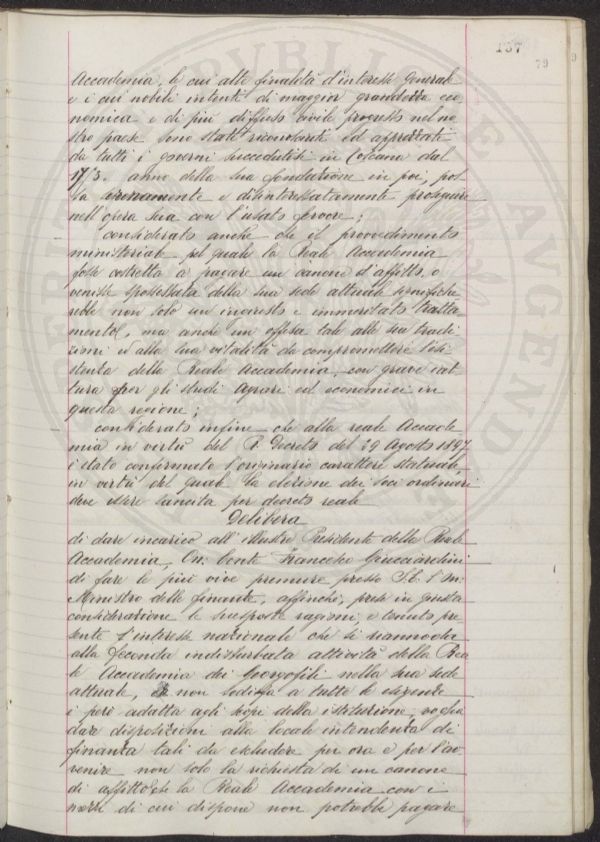 137
79
9
Accademia, le cui alte finalità d'interesse generale
e i cui nobili intenti di maggior grandezza eco
nomica e di più diffuso civile progresso nel no
stro paese sono stati riconosciuti ed apprezzati
da tutti i governi succedutisi in Toscana dal
1753. anno della sua fondazione in poi, pos
sa serenamente e disinteressatamente proseguire
nell'opera sua con l'usato fervore;
considerato anche che il provvedimento
ministeriale pel quale la Reale Accademia
fosse costretta a pagare un canone d'affitto, o
venisse spossessata della sua sede attuale significhe
rebbe non solo un incresto e immeritato tratta
mento, ma anche un offesa tale alle sue tradi
zioni ed alla sua vitalità da compromettere l'esi
stenza della Reale Accademia, con grave iat
tura per gli studi agrari ed economici in
questa regione;
considerato infine che alla reale Accade
mia in virtù del R. Decreto del 29 Agosto 1897
è stato confermato l'originario carattere statuale,
in virtù del quale la elezione dei soci ordinari
deve essere sancita per decreto reale
Delibera
di dare incarico all'illustre Presidente della Reale
Accademia, On. Conte Francesco Guicciardini
di fare le più vive premure presso S. E. l'On.
Ministro delle finanze, affinchè, prese in giusta
considerazione le suesposte ragioni, e tenuto pre
sente l'interesse nazionale che si riannoda
alla feconda indisturbata attività della Rea
le Accademia dei Georgofili nella sua sede
attuale, se non sodisfa a tutte le esigenze
è però adatta agli scopi della istituzione, voglia
dare disposizioni alla locale intendenza di
finanza tali da escludere per ora e per l'av
venire non solo la richiesta di un canone
di affitto che la Reale Accademia con i
mezzi di cui dispone non potrebbe pagare